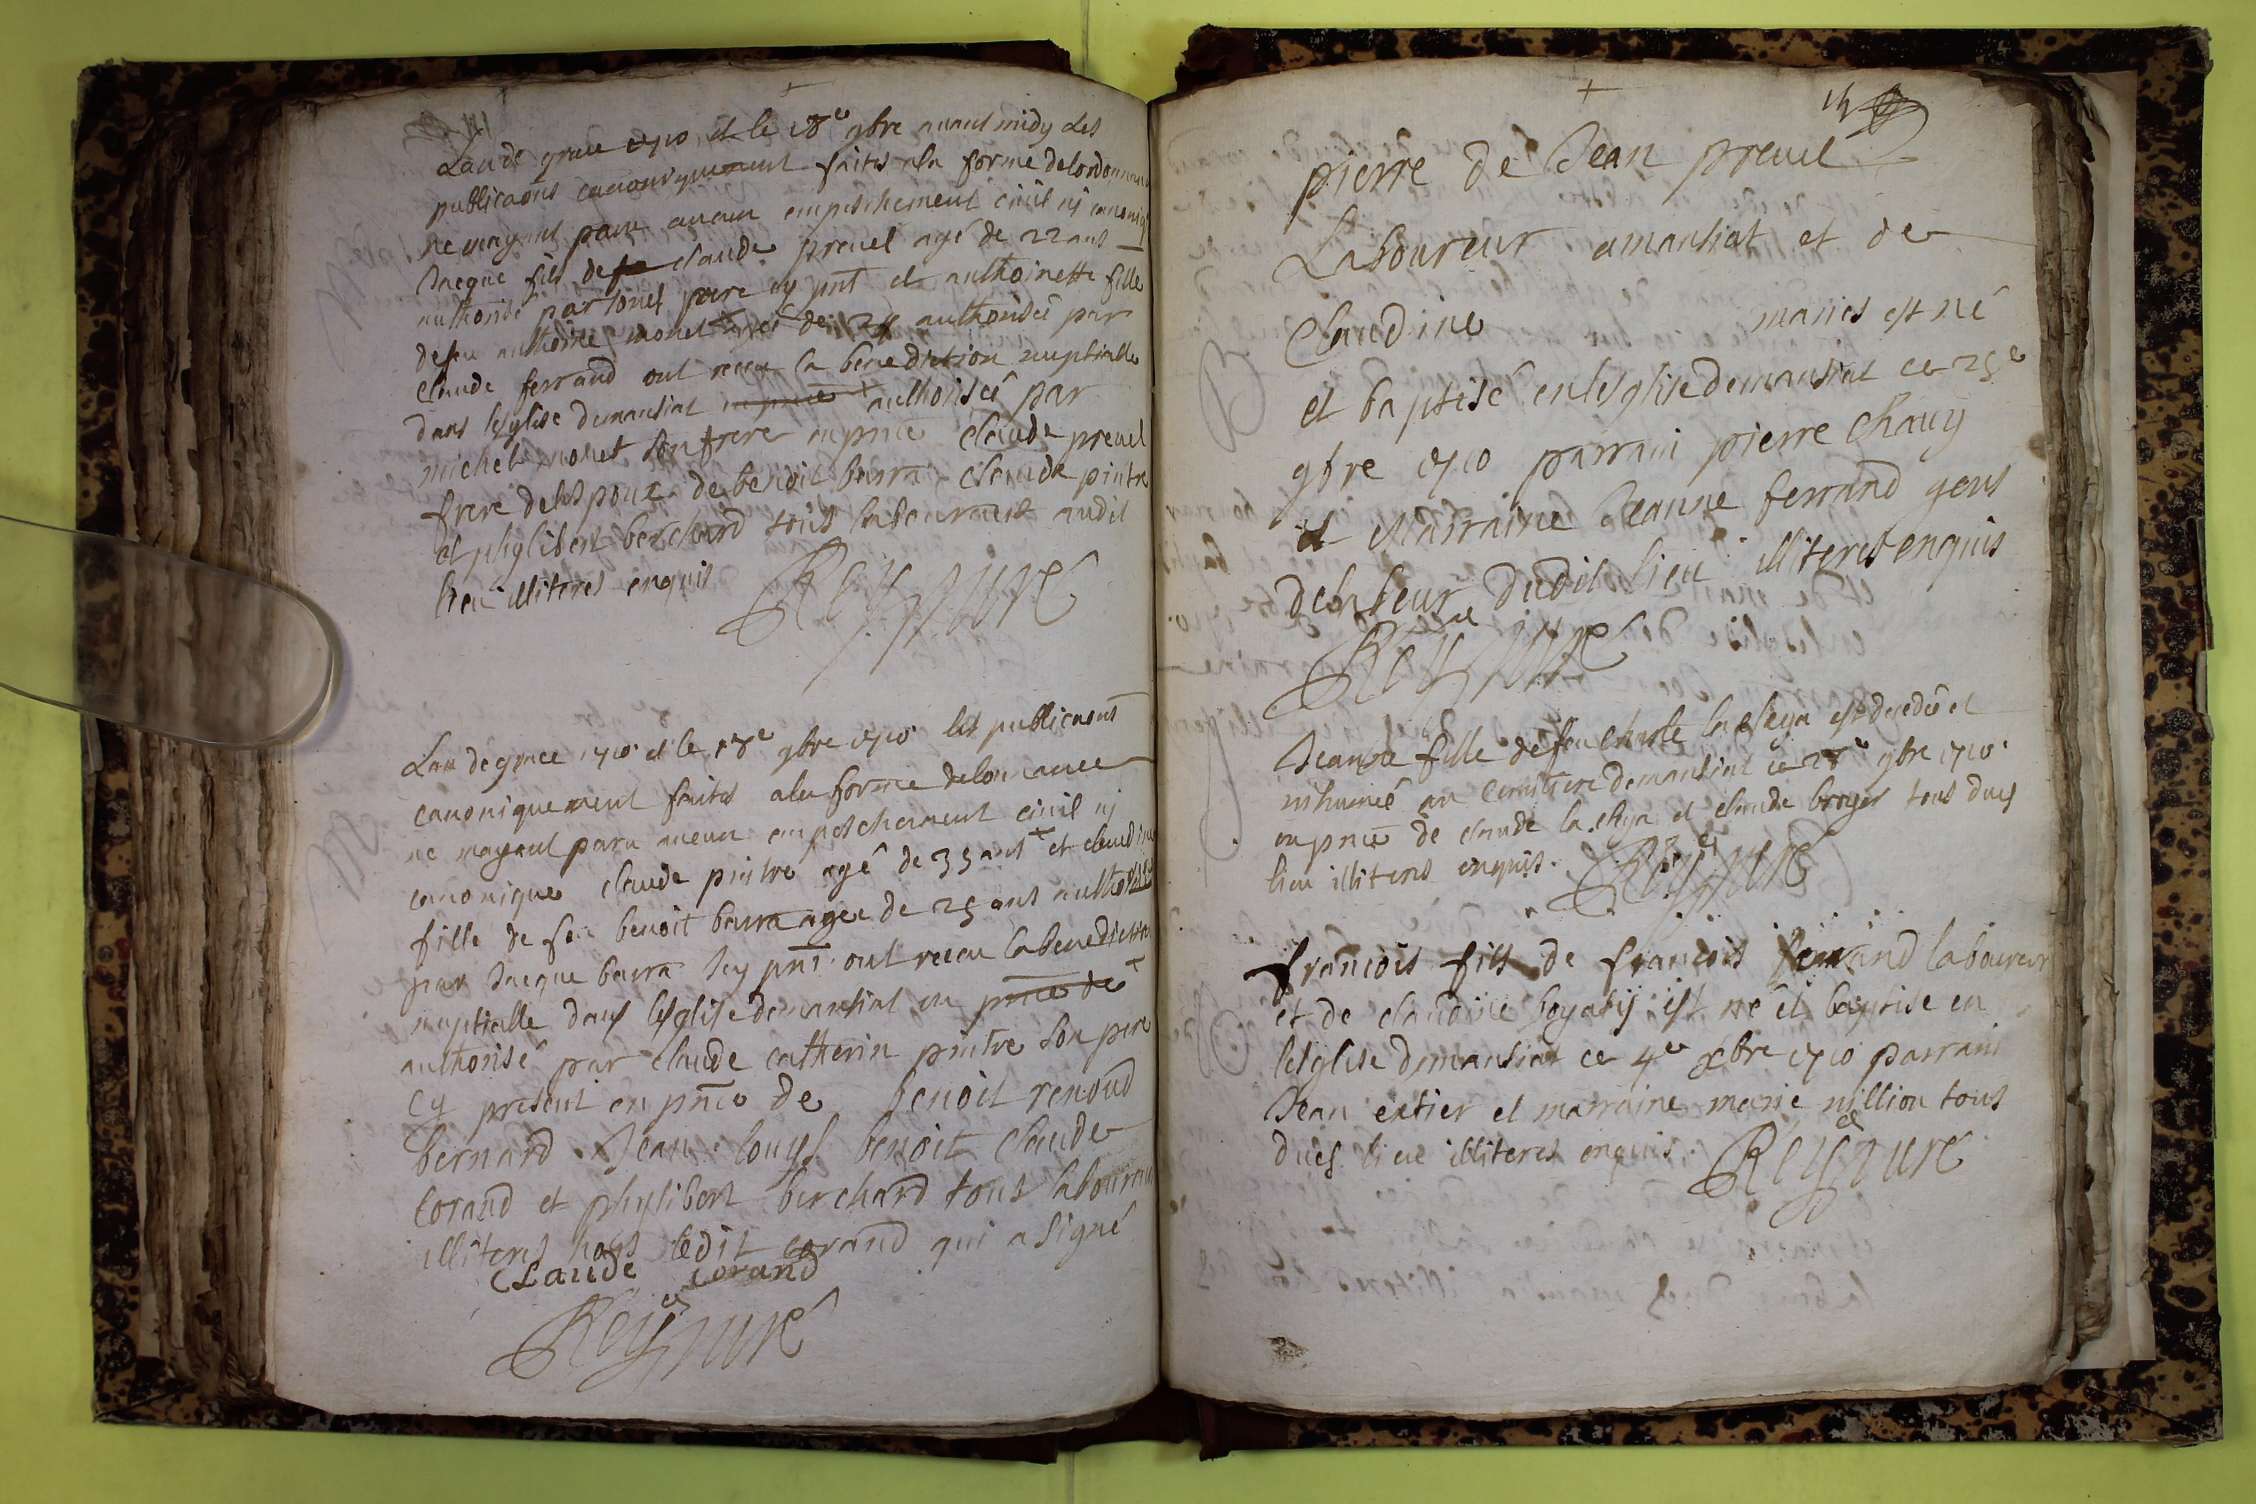 Lan de grace 1710 et le 18e 9bre avant midy les
publicaons canoniquement faites a la forme delordonnance
ne nayant paru aucun empeschement civil nj canoniq
Jacque fils de claude prevel agé de 22 ans
authorisé par son pere cy pnt et anthoinette fille
defeu anthoine monet agée de 24 authorisée par
Claude ferrand ont receu la benediction nuptialle
dans leglise demansiat authorisée par
michel monet son frere en pnce claude prevel
frere delespoux de benoit barra claude pintre
et phylibert berchard tous laboureurs audit
lieu illiteres enquis
Reyssure
Lan de grace 1710 et le 18e 9bre 1710 les publicaons
canoniquement faites a la forme delornance
ne nayant paru aucun empeschement civil nj
canonique claude pintre agé de 35 ans et claudine
fille de feu benoit barra agee de 25 ans authorisée
par Jacque barra Jcy pnt ont receu la benediction
nuptialle dans leglise demansiat en pnce de
authorisé par claude catherin pintre son pere
cy present en pnce de benoit renoud
bernard Jean louys benoit claude
corand et phylibert berchard tous laboureurs
illiteres hors ledit corand qui a signé
CLaude corand
Reyssure
pierre de Jean prevel
Laboureur amansiat et de
Claudine maries est né
et baptisé enleglise demansiat ce 25e
9bre 1710 parrain pierre Chavy
et Marraine Jeanne ferrand gens
delabeur dudit lieu illiteres enquis
Reyssure
M
M
B
Jeanne fille defeu charle la cheya est decedée et
inhumée au cemitiere demansiat ce 28e 9bre 1710
en pnce de claude la cheya et claude broyer tous dud
lieu illiteres enquis.
Reyssure
francois fils de francois ferrand laboureur
et de claudine boyatij est né et baptise en
leglise demansiat ce 4e xbre 1710 parrain
Jean extier et marraine marie million tous
dud lieu illiteres enquis.
Reyssure